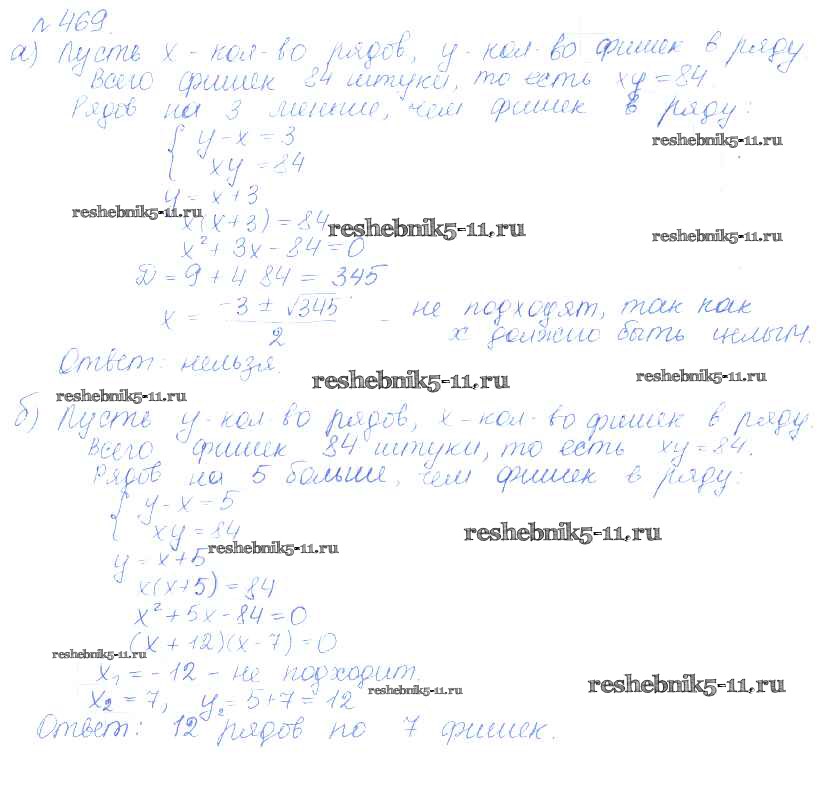 №469.
а) Пусть x - кол-во рядов, y - кол-во фишек в ряду
Всего фишек 84 штуки, то есть xy = 84.
Рядов на 3 меньше, чем фишек в ряду:
reshebnik5-11.ru
{ y - x = 3
xy = 84
y = x + 3
reshebnik5-11.ru
x(x+3) = 84
reshebnik5-11.ru
reshebnik5-11.ru
x² + 3x - 84 = 0
D = 9 + 4 84 = 345
x = (-3 ± √345)/2 - не подходят, так как
x должно быть целым.
Ответ: нельзя.
reshebnik5-11.ru
reshebnik5-11.ru
reshebnik5-11.ru
б) Пусть y - кол-во рядов, x - кол-во фишек в ряду.
Всего фишек 84 штуки, то есть xy = 84.
Рядов на 5 больше, чем фишек в ряду:
{ y - x = 5
xy = 84
reshebnik5-11.ru
reshebnik5-11.ru
y = x + 5
x(x+5) = 84
x² + 5x - 84 = 0
(x + 12)(x - 7) = 0
reshebnik5-11.ru
x₁ = -12 - не подходит.
reshebnik5-11.ru
reshebnik5-11.ru
x₂ = 7, y₂ = 5+7 = 12
Ответ: 12 рядов по 7 фишек.